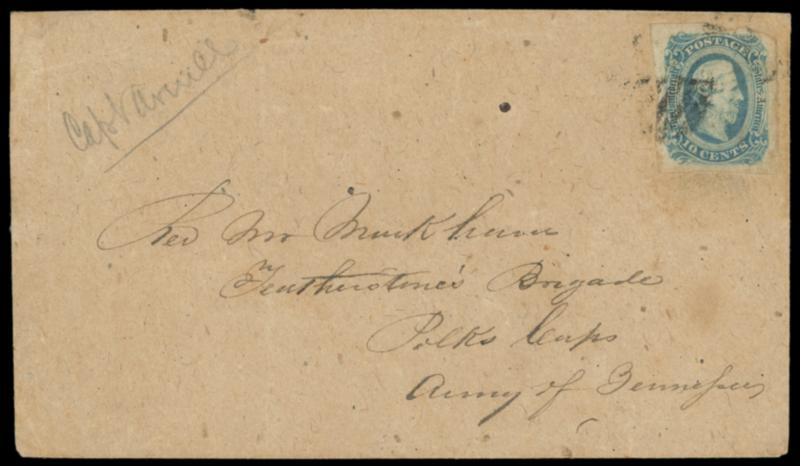 Capt
POSTAGE
Confederate States America
10 CENTS
Rev Mr Markham
Featherstone's Brigade
Polks Corps
Army of Tennessee